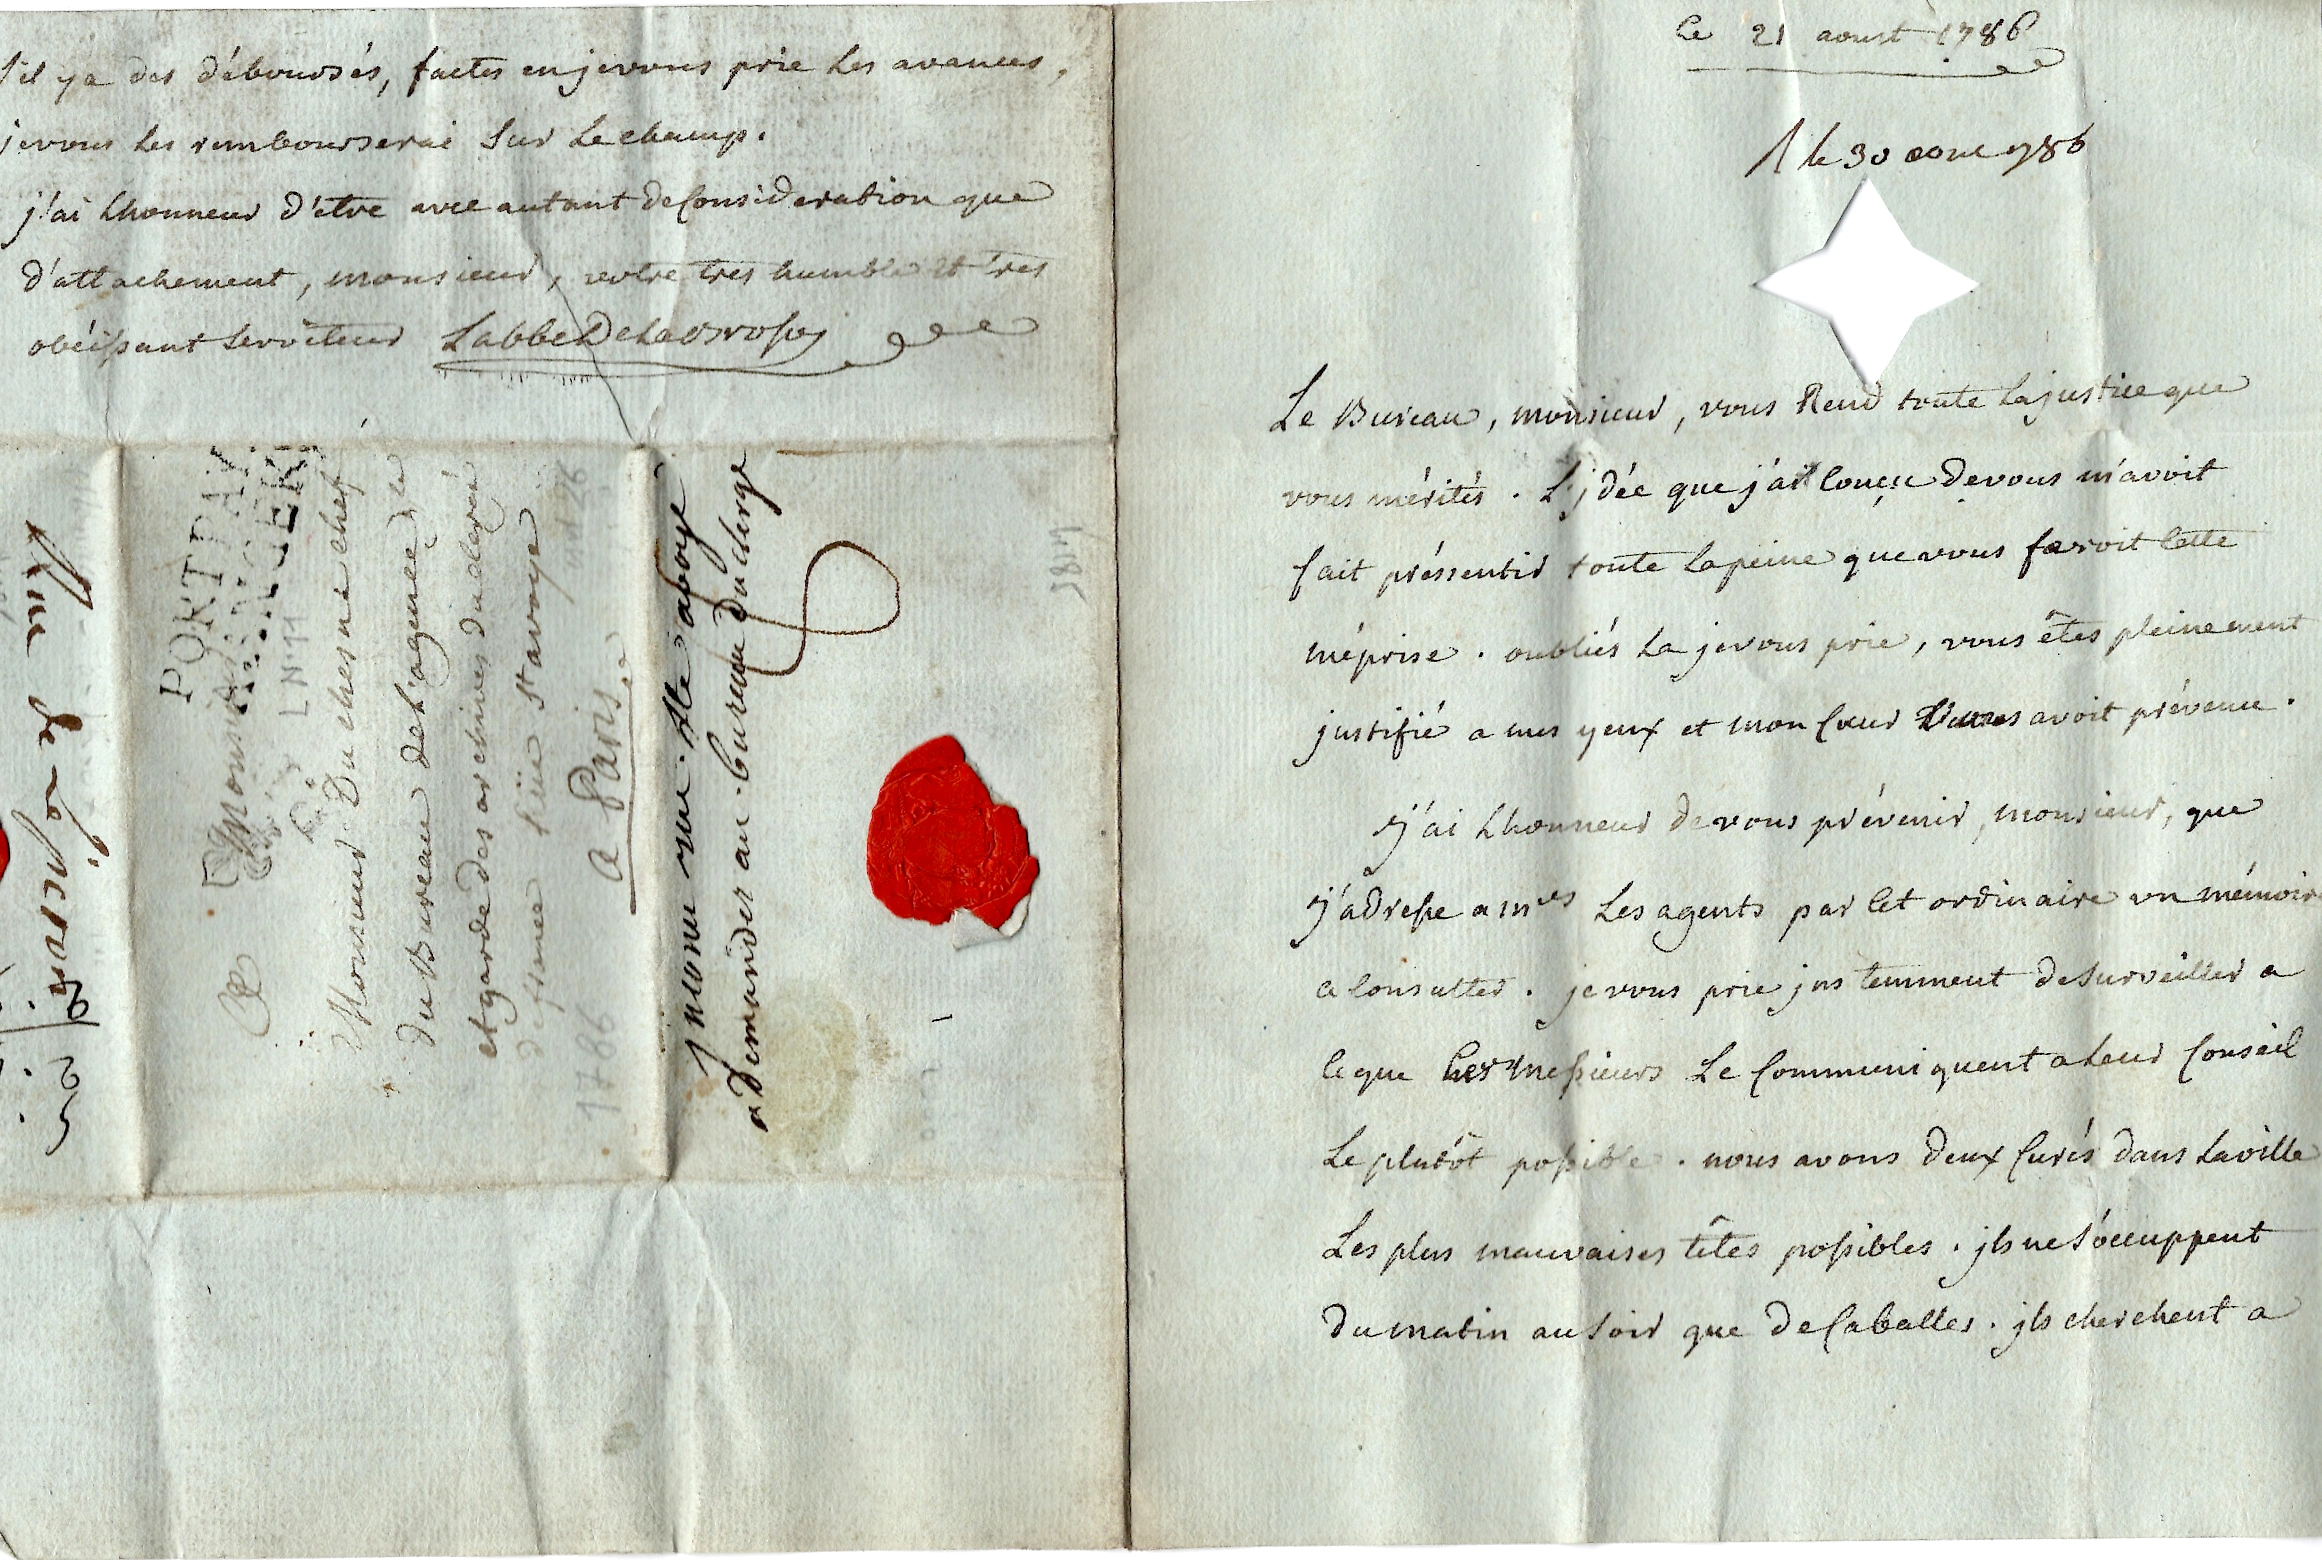 Ce 21 aoust 1786
le 30 aoust 786
Le Bureau, monsieur, vous Rend toute la justice que
vous mérités. L'jdée que j'ai Conçue de vous m'avoit
fait préssentir toute la peine que vous feroit Cette
méprise. oubliés la je vous prie, vous êtes pleinement
justifié a mes yeux et mon Cœur vous avoit prévenu.
j'ai L'honneur de vous prévenir, monsieur, que
j'adresse a mrs Les agents par Cet ordinaire un mémoire
a Consulter. je vous prie jnstemment de surveiller a
Ce que Ces Messieurs Le Communiquent a Leur Conseil
Le plutôt possible. nous avons deux Curés dans La ville
Les plus mauvaises têtes possibles. jls ne s'occuppent
du matin au soir que de Caballes. jls cherchent a
s'il y a des déboursés, faites en je vous prie Les avances,
je vous Les rembourserai sur Le champ.
j'ai L'honneur d'etre avec autant de Consideration que
d'attachement, monsieur, votre tres humble et tres
obéissant serviteur L'abbé De
PORT PAYÉ
Monsieur
Monsieur Duchesne chef
du Bureau de l'agence,
et garde des archives du clergé
de france Rüe St avoye
a Paris
1786
jnconu rue Ste avoye
a Demander au bureau du clergé